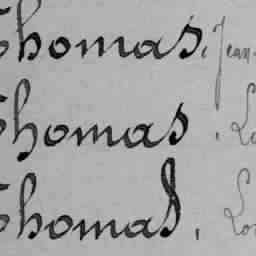 Thomas, Jean
Thomas,
Thomas,